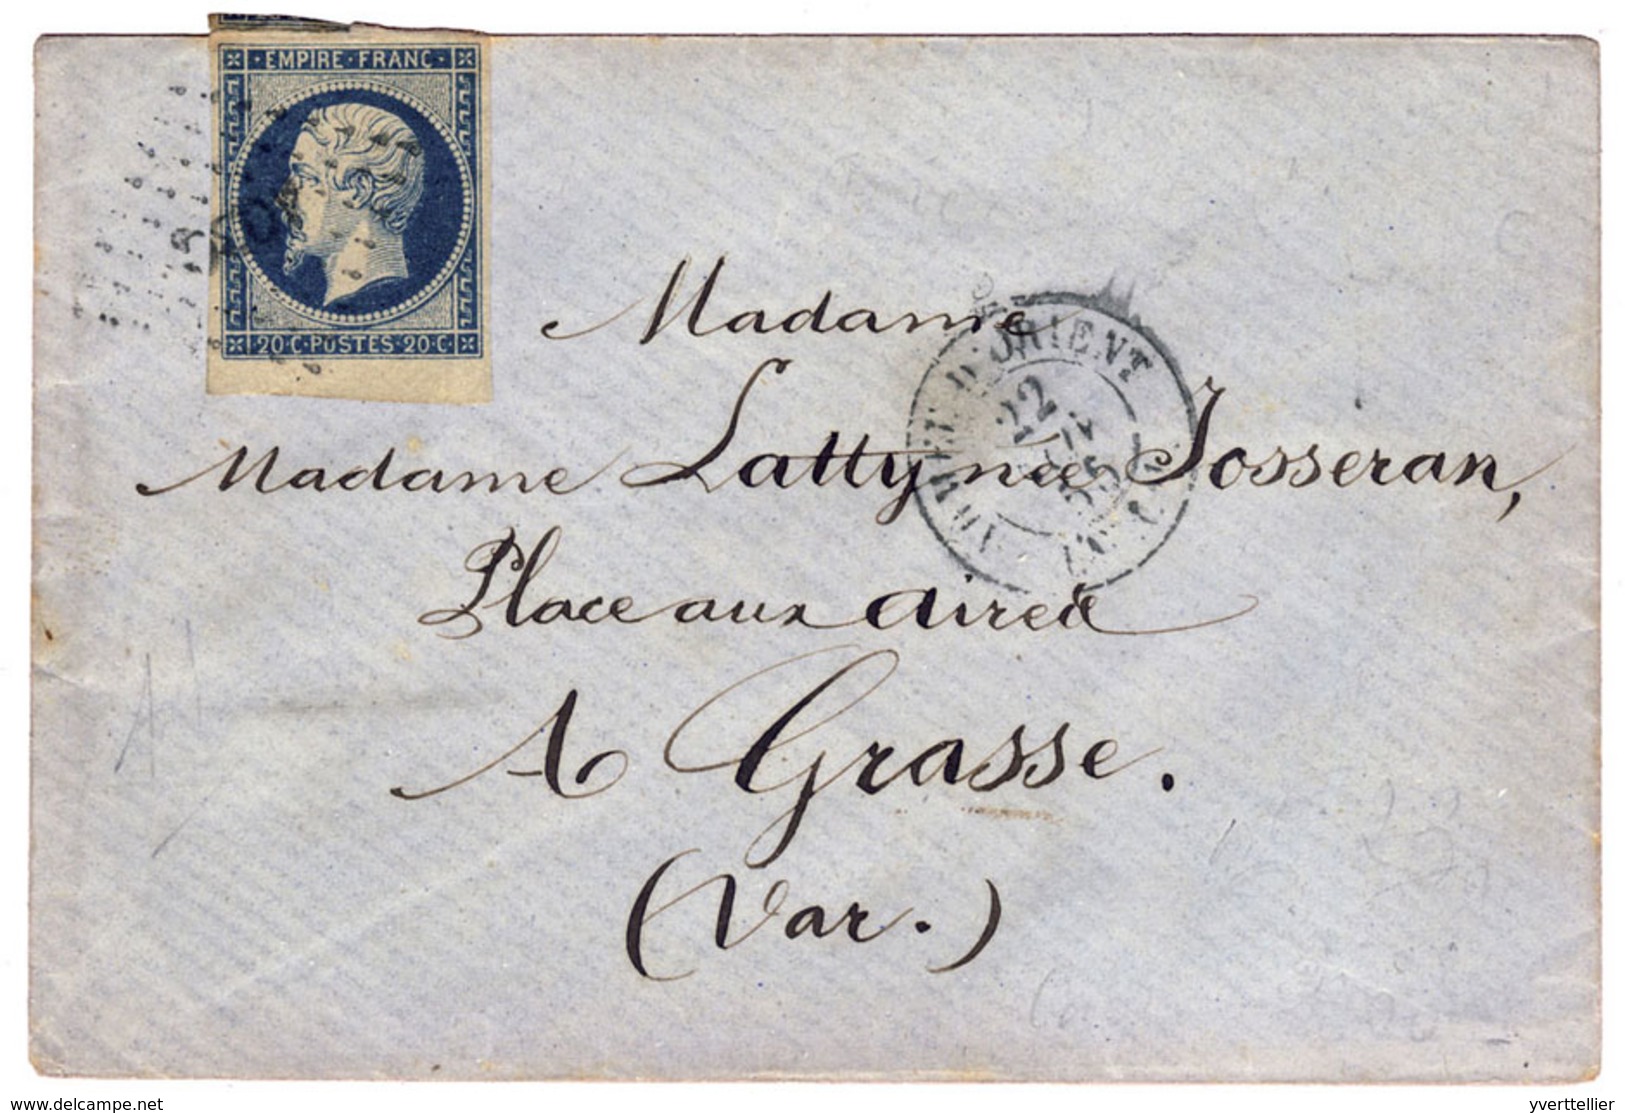 EMPIRE · FRANC ·
20 · C · POSTES · 20 · C ·
D'ORIENT
22
Madame
Madame Latty née Josseran,
Place aux aires
A Grasse.
(Var.)
www.delcampe.net
yverttellier